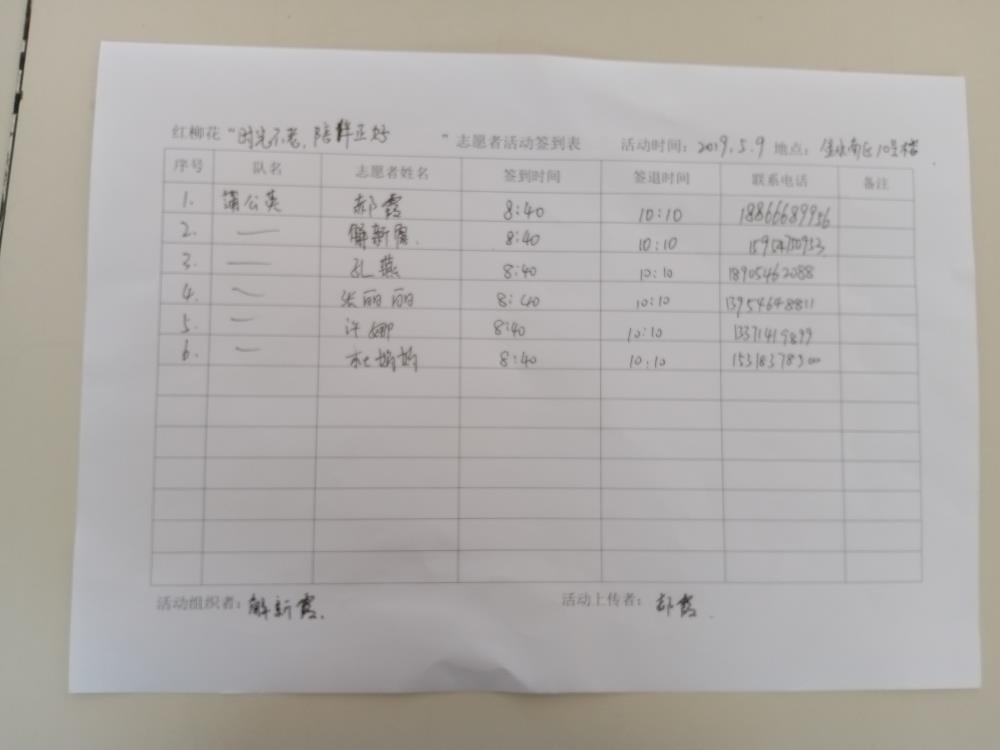 红柳花“时光不老,陪伴正好”志愿者活动签到表 活动时间：2019.5.9 地点：金水南区10号楼
序号 队名 志愿者姓名 签到时间 签退时间 联系电话 备注
1. 蒲公英 郝霞 8:40 10:10 18866689956
2. — 解新霞. 8:40 10:10
3. — 孔燕 8:40 10:10 18905462088
4. — 张丽丽 8:40 10:10 13954648811
5. — 许娜 8:40 10:10 13371419899
6. — 杜娟娟 8:40 10:10
活动组织者：解新霞. 活动上传者：郝霞.